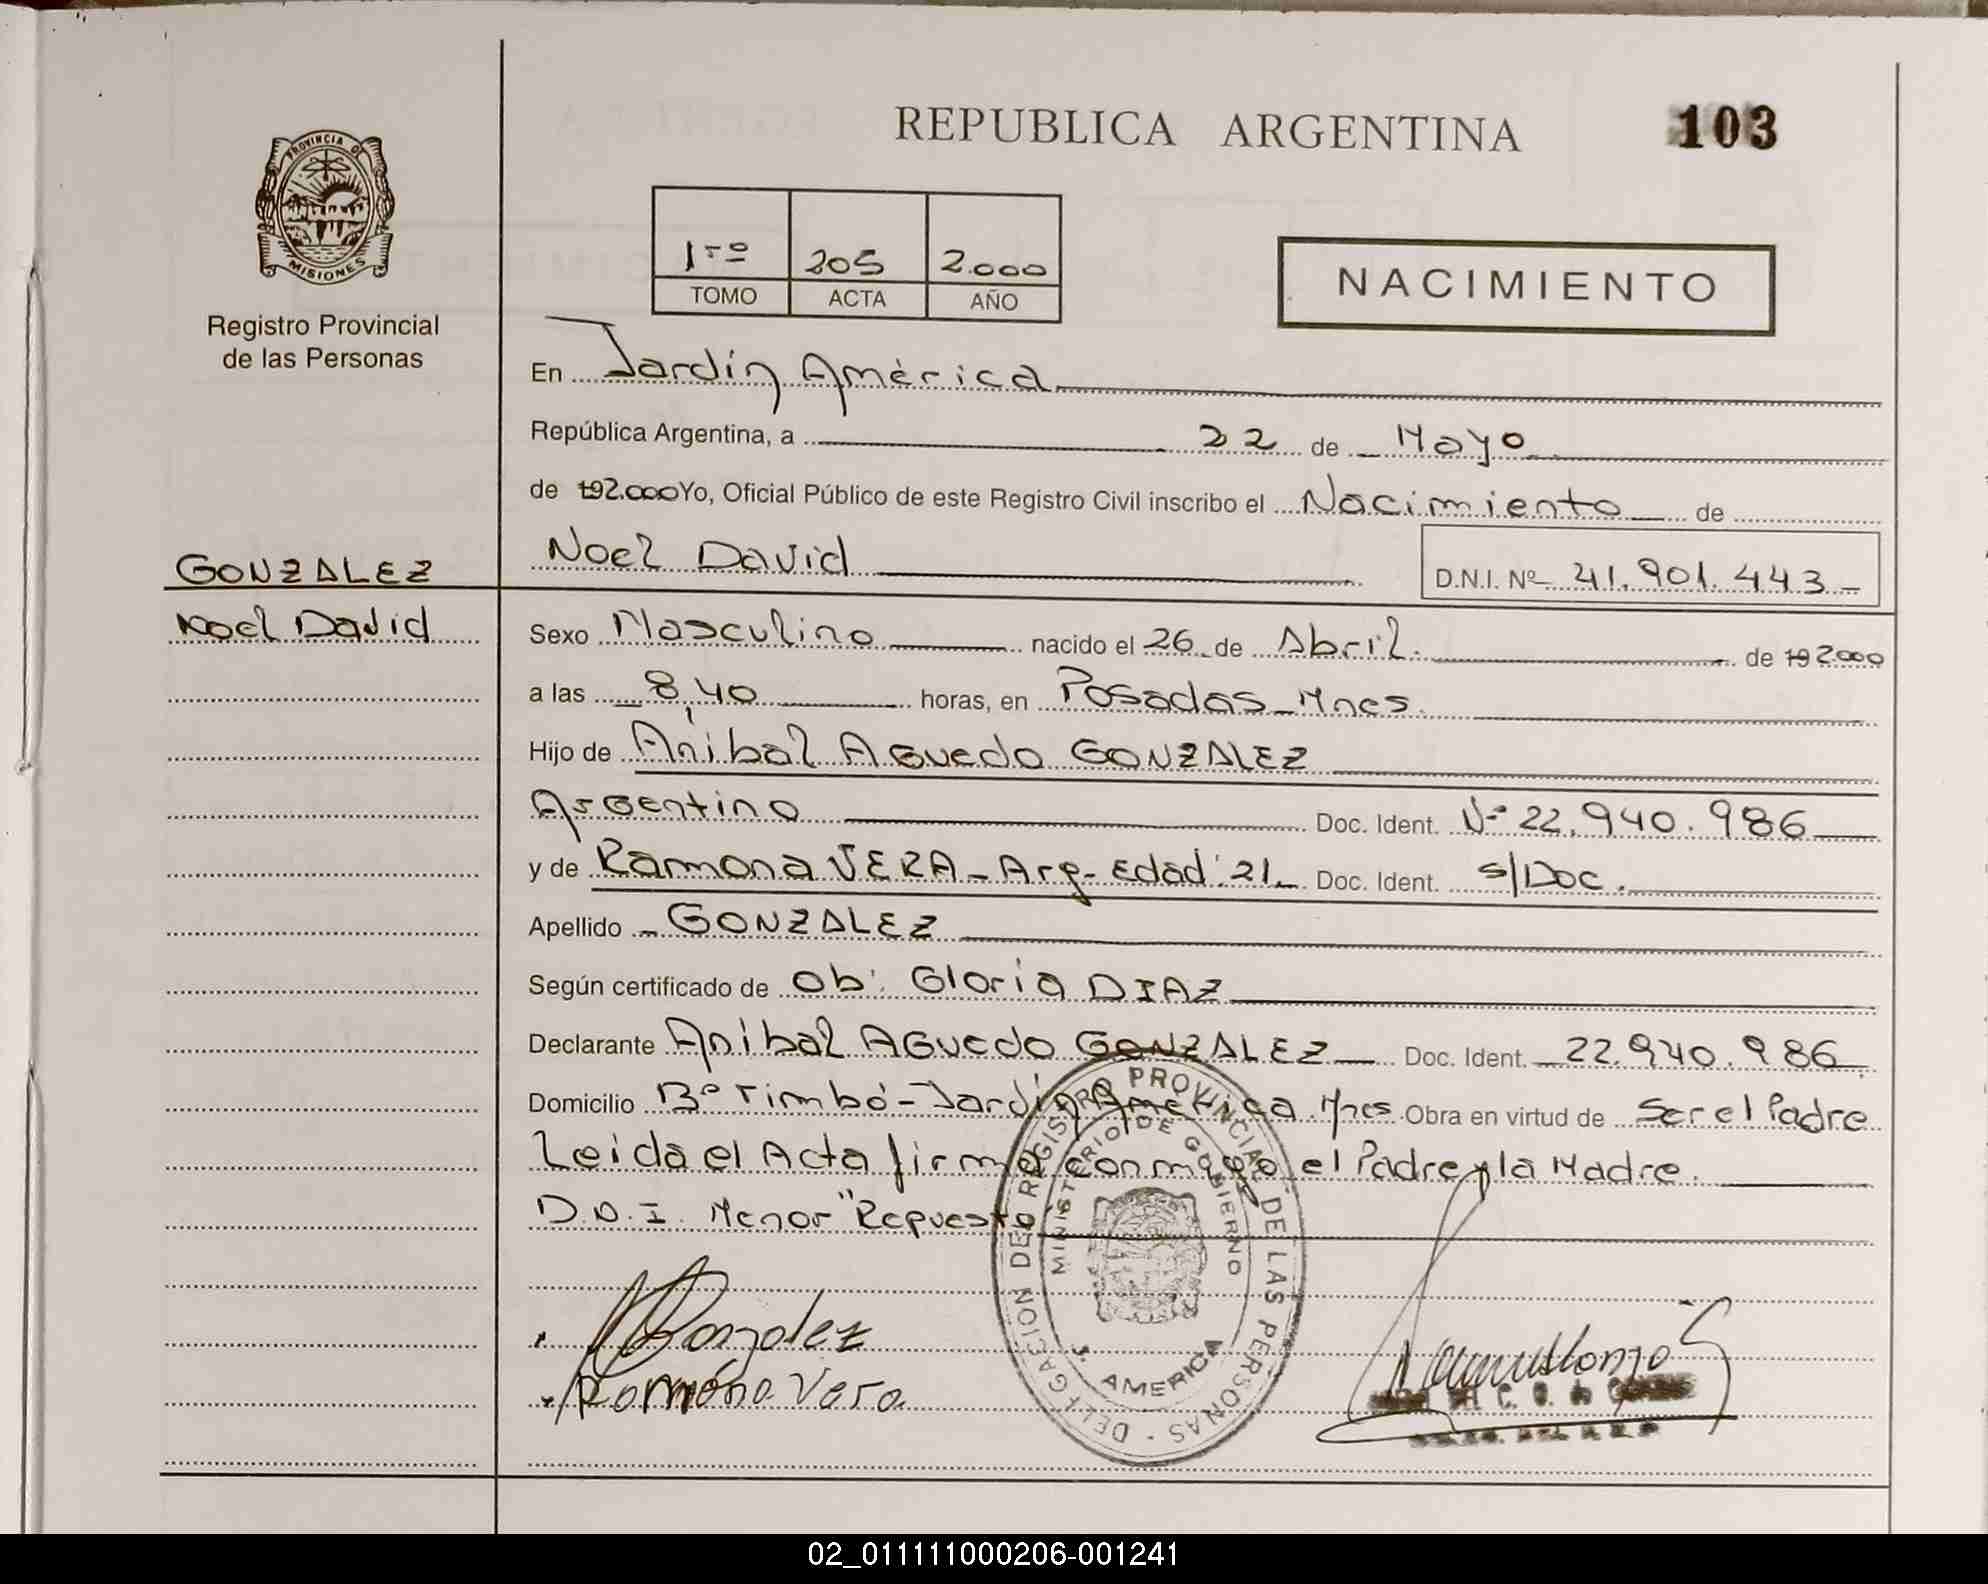 REPUBLICA ARGENTINA
103
PROVINCIA DE
MISIONES
Registro Provincial
de las Personas
1ro 205 2.000
TOMO ACTA AÑO
NACIMIENTO
En Jardín América
República Argentina, a 22 de Mayo
de 192.000 Yo, Oficial Público de este Registro Civil inscribo el Nacimiento de
Noel David D.N.I. Nº 41.901.443
GONZALEZ
Noel David
Sexo Masculino nacido el 26 de Abril. de 192.000
a las 8,40 horas, en Posadas_Mnes.
Hijo de Anibal Aguedo GONZALEZ
Argentino Doc. Ident. Nº 22.940.986
y de Ramona VERA - Arg- Edad: 21 Doc. Ident. s/Doc.
Apellido GONZALEZ
Según certificado de Ob: Gloria DIAZ
Declarante Anibal AGUEDO GONZALEZ Doc. Ident. 22.940.986
Domicilio Bº Timbó - Jardín América. Mnes. Obra en virtud de Ser el Padre
Leida el Acta firma conmigo el Padre y la Madre.
D.N.I. Menor "Repuesto"
DELEGACION DE REGISTRO PROVINCIAL DE LAS PERSONAS
MINISTERIO DE GOBIERNO
J. AMERICA
Gonzalez
Ramóna Vera
02_011111000206-001241